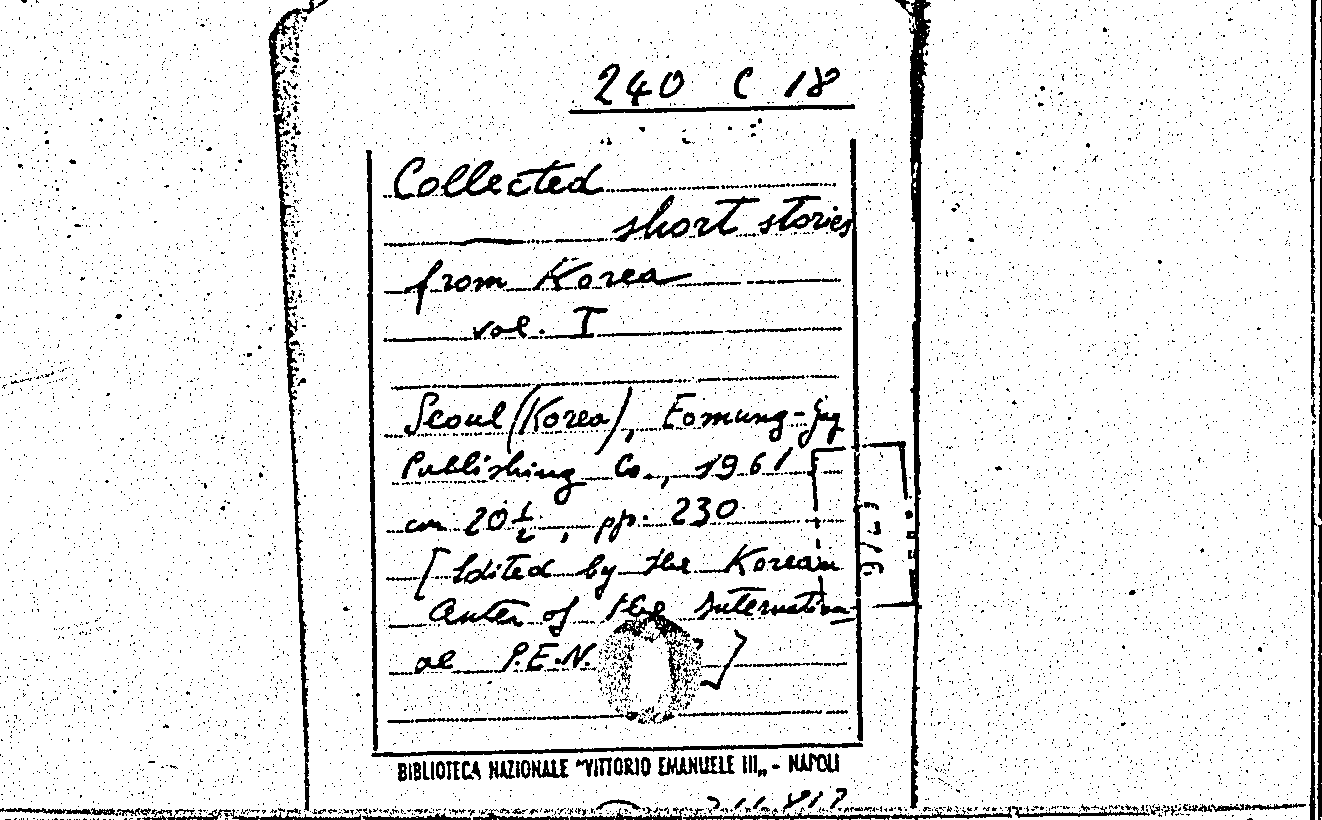 240 C 18
Collected
short stories
from Korea
vol. I
Seoul (Korea), Eomung-gag
Publishing Co., 1961
cm 20 1/2, pp. 230
[Edited by the Korean
Center of the Internation-
al P.E.N. ]
BIBLIOTECA NAZIONALE "VITTORIO EMANUELE III„ - NAPOLI